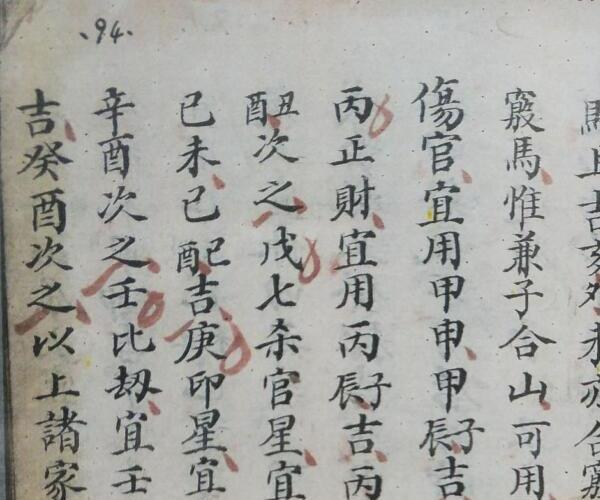 .94.
馬上吉亥外未亦合竅
竅馬惟兼子合山可用
傷官宜用甲申甲子辰吉
丙正財宜用丙子辰吉丙
丑酉次之戊七杀官星宜
已未已巳酉吉庚印星宜
辛酉次之壬比刼宜壬
吉癸酉次之以上諸家